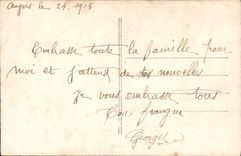 Angers le 24. 1918
Embrasse toute la famille pour
moi et j'attend de tes nouvelles
Je vous embrasse tous
Ton frangin
Georges